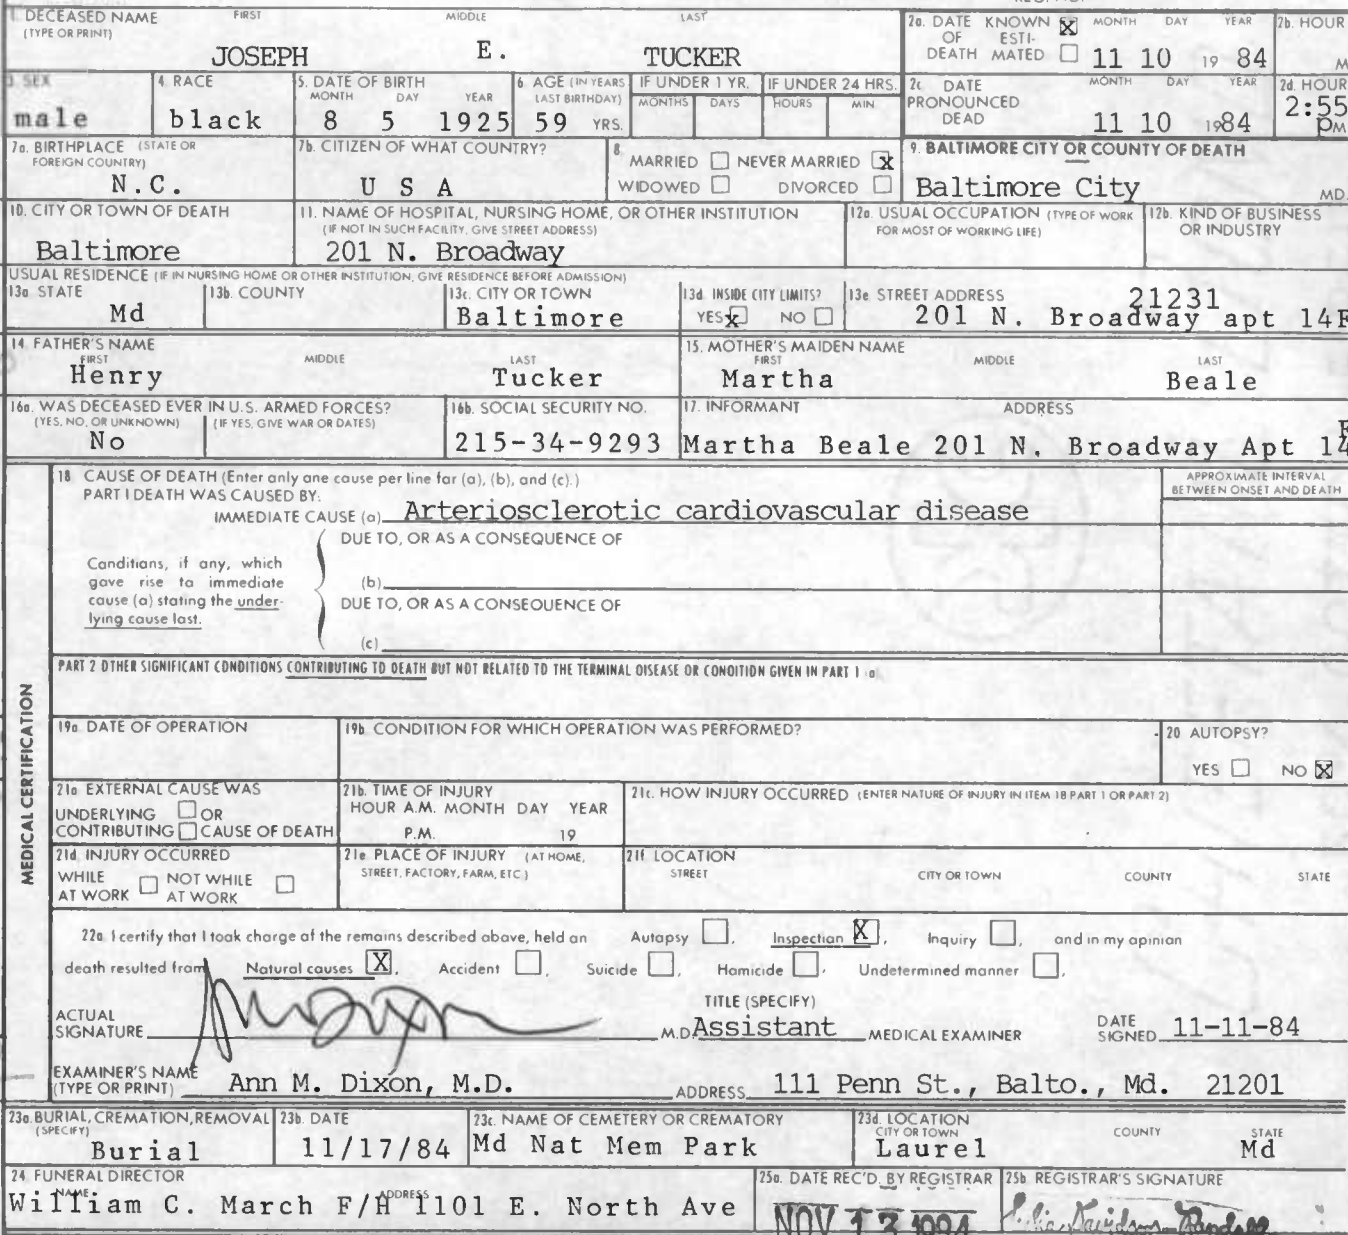 1. DECEASED NAME FIRST MIDDLE LAST
(TYPE OR PRINT)
JOSEPH E. TUCKER
2a. DATE OF DEATH KNOWN X ESTIMATED MONTH DAY YEAR
11 10 19 84
2b. HOUR
M
3 SEX
male
4. RACE
black
5. DATE OF BIRTH
MONTH DAY YEAR
8 5 1925
6 AGE (IN YEARS LAST BIRTHDAY)
59 YRS.
IF UNDER 1 YR.
MONTHS DAYS
IF UNDER 24 HRS.
HOURS MIN
2c DATE PRONOUNCED DEAD MONTH DAY YEAR
11 10 1984
2d. HOUR
2:55 PM
7a. BIRTHPLACE (STATE OR FOREIGN COUNTRY)
N.C.
7b. CITIZEN OF WHAT COUNTRY?
U S A
8
MARRIED NEVER MARRIED X
WIDOWED DIVORCED
9. BALTIMORE CITY OR COUNTY OF DEATH
Baltimore City MD.
10. CITY OR TOWN OF DEATH
Baltimore
11. NAME OF HOSPITAL, NURSING HOME, OR OTHER INSTITUTION
(IF NOT IN SUCH FACILITY, GIVE STREET ADDRESS)
201 N. Broadway
12a. USUAL OCCUPATION (TYPE OF WORK FOR MOST OF WORKING LIFE)
12b. KIND OF BUSINESS OR INDUSTRY
USUAL RESIDENCE (IF IN NURSING HOME OR OTHER INSTITUTION, GIVE RESIDENCE BEFORE ADMISSION)
13a STATE
Md
13b. COUNTY
13c. CITY OR TOWN
Baltimore
13d. INSIDE CITY LIMITS?
YES X NO
13e STREET ADDRESS
21231
201 N. Broadway apt 14F
14 FATHER'S NAME
FIRST MIDDLE LAST
Henry Tucker
15. MOTHER'S MAIDEN NAME
FIRST MIDDLE LAST
Martha Beale
16a. WAS DECEASED EVER IN U.S. ARMED FORCES?
(YES, NO, OR UNKNOWN) (IF YES, GIVE WAR OR DATES)
No
16b. SOCIAL SECURITY NO.
215-34-9293
17. INFORMANT ADDRESS
Martha Beale 201 N. Broadway Apt 14F
MEDICAL CERTIFICATION
18 CAUSE OF DEATH (Enter only one cause per line for (a), (b), and (c).)
PART I DEATH WAS CAUSED BY:
APPROXIMATE INTERVAL BETWEEN ONSET AND DEATH
IMMEDIATE CAUSE (a) Arteriosclerotic cardiovascular disease
DUE TO, OR AS A CONSEQUENCE OF
Conditions, if any, which
gave rise to immediate
cause (a) stating the under-
lying cause last.
(b)
DUE TO, OR AS A CONSEQUENCE OF
(c)
PART 2 OTHER SIGNIFICANT CONDITIONS CONTRIBUTING TO DEATH BUT NOT RELATED TO THE TERMINAL DISEASE OR CONDITION GIVEN IN PART 1 (a)
19a. DATE OF OPERATION
19b CONDITION FOR WHICH OPERATION WAS PERFORMED?
20 AUTOPSY?
YES NO X
21a EXTERNAL CAUSE WAS
UNDERLYING OR
CONTRIBUTING CAUSE OF DEATH
21b. TIME OF INJURY
HOUR A.M. MONTH DAY YEAR
P.M. 19
21c. HOW INJURY OCCURRED (ENTER NATURE OF INJURY IN ITEM 18 PART 1 OR PART 2)
21d. INJURY OCCURRED
WHILE AT WORK NOT WHILE AT WORK
21e PLACE OF INJURY (AT HOME, STREET, FACTORY, FARM, ETC)
21f. LOCATION
STREET CITY OR TOWN COUNTY STATE
22a. I certify that I took charge of the remains described above, held an Autopsy , Inspection X, Inquiry , and in my opinion
death resulted from Natural causes X, Accident , Suicide , Homicide , Undetermined manner ,
ACTUAL SIGNATURE
M.D.
TITLE (SPECIFY)
Assistant MEDICAL EXAMINER
DATE SIGNED 11-11-84
EXAMINER'S NAME
(TYPE OR PRINT) Ann M. Dixon, M.D.
ADDRESS 111 Penn St., Balto., Md. 21201
23a. BURIAL, CREMATION, REMOVAL
(SPECIFY)
Burial
23b. DATE
11/17/84
23c. NAME OF CEMETERY OR CREMATORY
Md Nat Mem Park
23d. LOCATION
CITY OR TOWN COUNTY STATE
Laurel Md
24 FUNERAL DIRECTOR
NAME ADDRESS
William C. March F/H 1101 E. North Ave
25a. DATE REC'D. BY REGISTRAR
NOV 13 1984
25b. REGISTRAR'S SIGNATURE